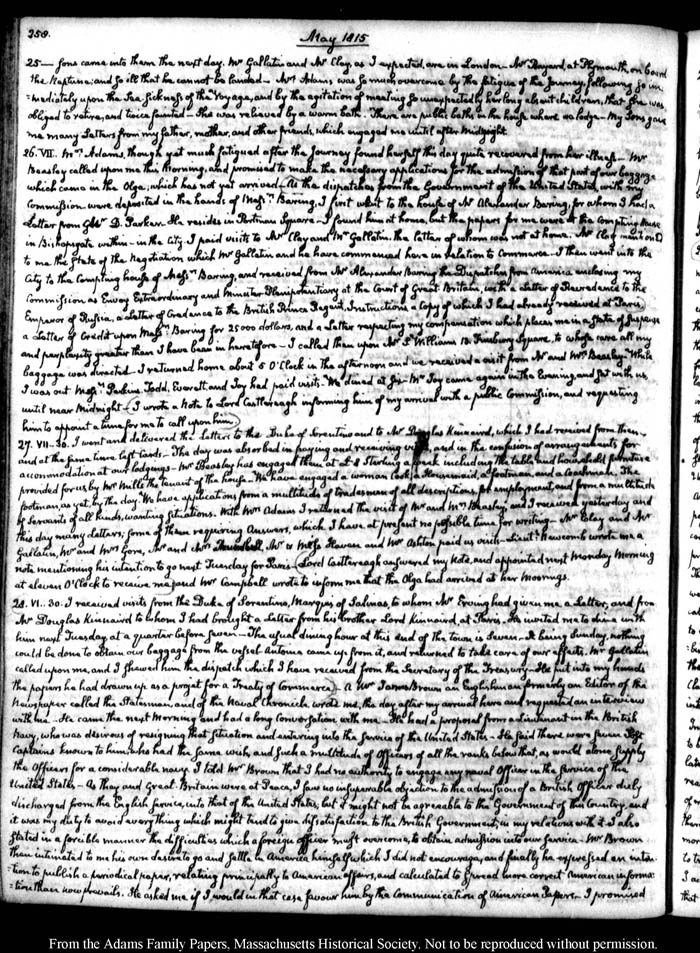 258.
May 1815
25 — sons came into them the next day. Mr Gallatin and Mr Clay, as I expected, are in London. Mr Bayard, at Plymouth, on board
the Neptune; and so ill that he cannot be landed. Mrs Adams was so much overcome by the fatigue of the Journey, following so im-
-mediately upon the Sea Sickness of the Voyage, and by the agitation of meeting so unexpectedly her long absent children, that she was
obliged to retire, and twice fainted — She was relieved by a warm bath. There are public baths in the house where we lodge — My Sons gave
me many Letters from my father, mother, and other friends, which engaged me until after Midnight.
26. VII. Mrs Adams, though yet much fatigued after the Journey found herself this day quite recovered from her illness. Mr
Beasley called upon me this Morning, and promised to make the necessary applications for the admission of that part of our baggage
which came in the Olga; which has not yet arrived — As the dispatches from the Government of the United States, with my
Commission were deposited in the hands of Messrs Baring, I first went to the house of Mr Alexander Baring, for whom I had a
Letter from D. Parker. He resides in Portman Square — I found him at home, but the papers for me were at the Compting House
in Bishopsgate within — in the City. I paid visits to Mr Clay and Mr Gallatin, the latter of whom was not at home. Mr Clay
to me the State of the Negotiation which Mr Gallatin and he have commenced here in relation to Commerce — I then went into the
City to the Compting house of Messrs Baring, and received from Mr Alexander Baring the Dispatches from America enclosing my
Commission as Envoy Extraordinary and Minister Plenipotentiary at the Court of Great Britain, with a Letter of Recredence to the
Emperor of Russia, a Letter of Credence to the British Prince Regent, Instructions a Copy of which I had already received at Paris
a Letter of Credit upon Messrs Baring for 25000 dollars, and a Letter respecting my compensation which places me in a State of suspense
and perplexity greater than I have been in heretofore — I called then upon Mr S. Williams 13. Finsbury Square, to whose care all my
baggage was directed. I returned home about 5 O'Clock in the afternoon and we received a visit from Mr and Mrs Beasley — While
I was out Messrs Perkins, Todd, Everett, and Joy had paid visits. We dined at Six. Mr Joy came again in the Evening, and sat with us
until near Midnight — I wrote a Note to Lord Castlereagh informing him of my arrival with a public Commission, and requesting
him to appoint a time for me to call upon him.
27. VII-30. I went and delivered the Letters to the Duke of Sorentino and to Mr Douglas Kinnaird, which I had received from them —
and at the same time left Cards — The day was absorbed in paying and receiving, and in the confusion of arrangements for
accommodation at our lodgings — Mr Beasley has engaged them at Sterling a week including the table and household furniture
provided for us by Mr Mills the tenant of the house — We have engaged a woman Cook, a Housemaid, a footman, and a Coachman. The
footman, as yet, by the day. We have applications from a multitude of tradesmen of all descriptions for employment, and from a multitude
of Servants of all kinds, wanting situations. With Mrs Adams I returned the visit of Mr and Mrs Beasley, and I received yesterday and
this day many Letters; some of them requiring Answers, which I have at present no possible time for writing — Mr Clay and Mr
Gallatin, Mr and Mrs Gore, Mr and Mrs and Mr Ashton paid us visits — Lieut. Newcomb wrote me a
note mentioning his intention to go next Tuesday for Paris — Lord Castlereagh answered my Note, and appointed next Monday Morning
at eleven O'Clock to receive me, and Mr Campbell wrote to inform me that the Olga had arrived at her Moorings.
28. VI. 30. I received visits from the Duke of Sorentino, Marquis of Salinas, to whom Mr Erving had given me a Letter, and from
Mr Douglas Kinnaird to whom I had brought a Letter from his brother Lord Kinnaird, at Paris. He invited me to dine with
him next Tuesday at a quarter before Seven — The usual dining hour at this end of the town is Seven. It being Sunday, nothing
could be done to obtain our baggage from the vessel. Antoine came up from it, and returned to take care of our effects. Mr Gallatin
called upon me, and I shewed him the dispatch which I have received from the Secretary of the Treasury — He put into my hands
the papers he had drawn up as a projet for a Treaty of Commerce — A Mr James Brown an Englishman formerly an Editor of the
Newspaper called the Statesman, and of the Naval Chronicle wrote me, the day after my arrival here and requested an interview
with me. He came the next Morning and had a long Conversation with me — He had a proposal from a Lieutenant in the British
Navy, who was desirous of resigning that situation and entering into the service of the United States — He said there were seven Post
Captains known to him who had the same wish, and such a multitude of Officers of all the ranks below that, as would alone supply
the Officers for a considerable navy. I told Mr Brown that I had no authority to engage any naval Officer in the service of the
United States — As they and Great-Britain were at Peace, I saw no insuperable objection to the admission of a British Officer duly
discharged from the English service, into that of the United States, but it might not be agreeable to the Government of this Country, and
it was my duty to avoid every thing which might tend to give dissatisfaction to the British Government, in my relations with it. I also
stated in a forcible manner the difficulties which a foreign officer must overcome, to obtain admission into our service — Mr Brown
then intimated to me his own desire to go and settle in America himself which I did not encourage, and finally he expressed an inten-
-tion to publish a periodical paper, relating principally to American affairs, and calculated to spread more correct American informa-
-tion than now prevails. He asked me if I would in that case favour him by the Communication of American Papers. I promised
From the Adams Family Papers, Massachusetts Historical Society. Not to be reproduced without permission.